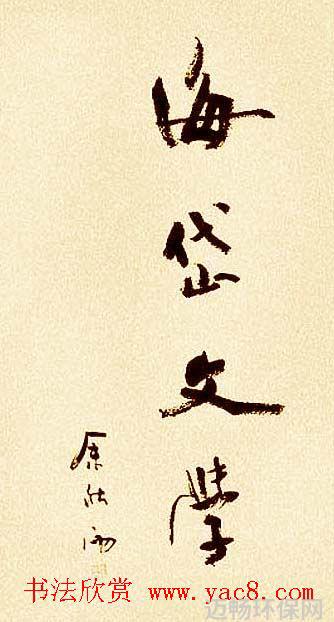 海岱文學
余秋雨
书法欣赏 www.yac8.com
迈畅环保网